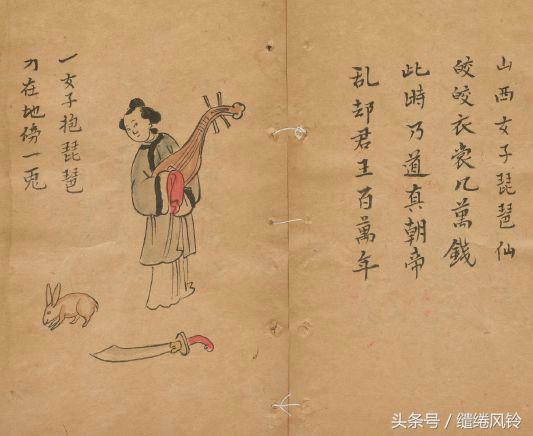 山西女子琵琶仙
皎皎衣裳几萬錢
此時乃道真朝帝
乱却君王百萬年
一女子抱琵琶
刀在地傍一兎
头条号 / 缱绻风铃